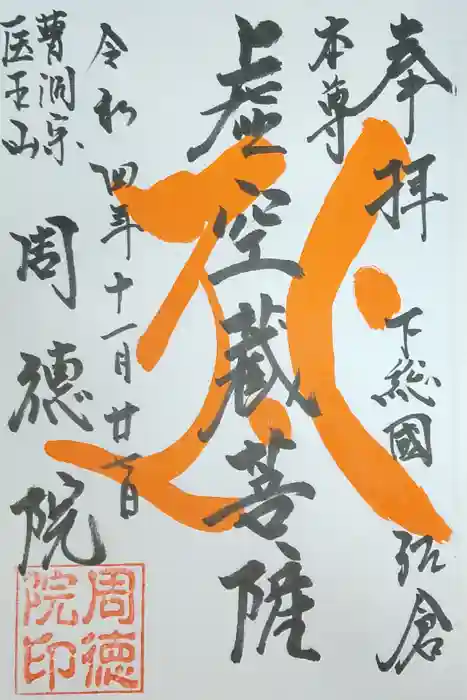 奉拝
下総國 佐倉
本尊
虚空蔵菩薩
令和四年十一月廿七日
曹洞宗
医王山
周徳院
周徳
院印